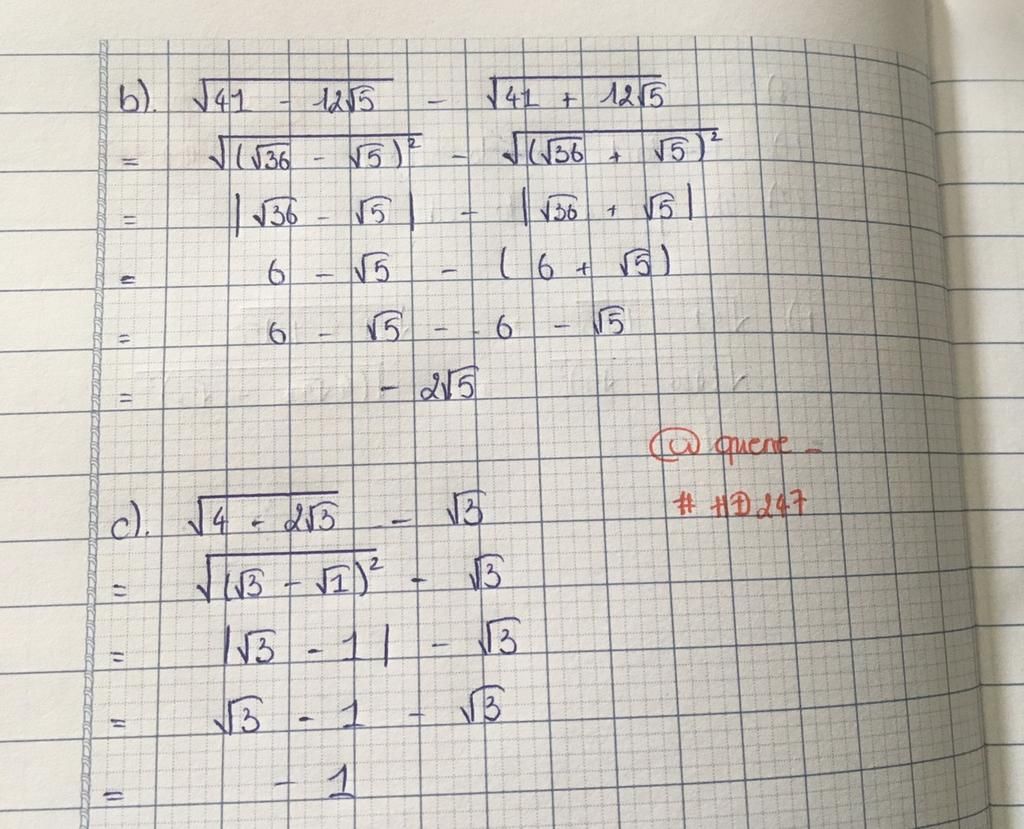 b). √(41 - 12√5) - √(41 + 12√5)
= √((√36 - √5)²) - √((√36 + √5)²)
= |√36 - √5| - |√36 + √5|
= 6 - √5 - (6 + √5)
= 6 - √5 - 6 - √5
= - 2√5
@ quene -
# HD247
c). √(4 - 2√3) - √3
= √((√3 - √1)²) - √3
= |√3 - 1| - √3
= √3 - 1 - √3
= - 1